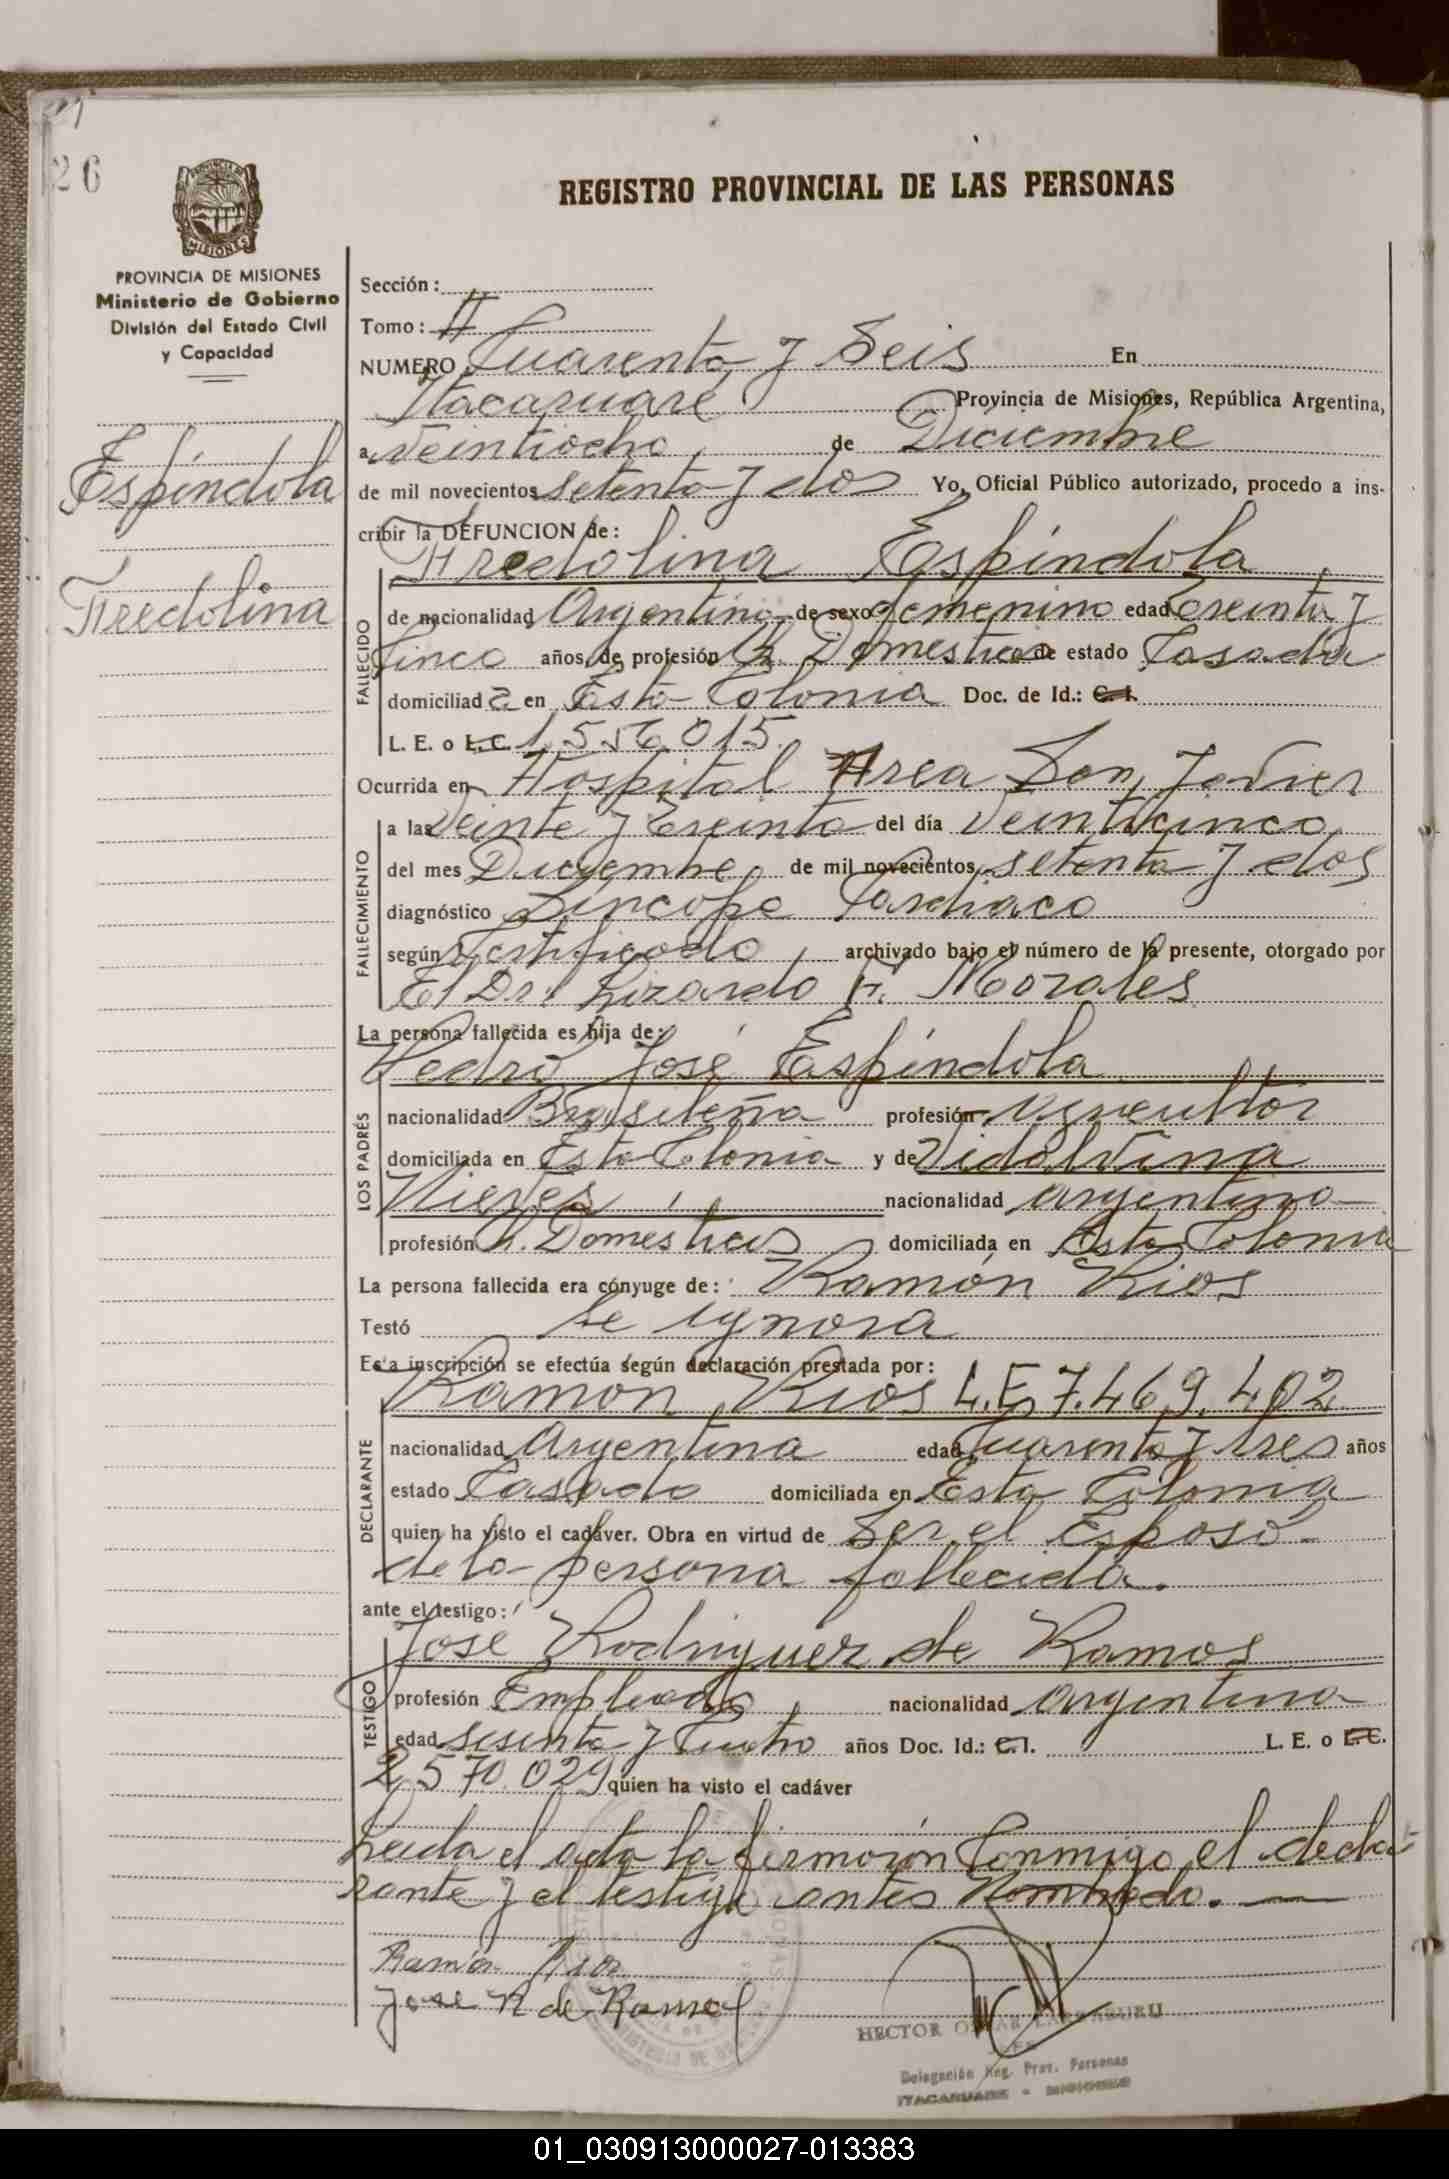 26
REGISTRO PROVINCIAL DE LAS PERSONAS
PROVINCIA DE MISIONES
Ministerio de Gobierno
División del Estado Civil
y Capacidad
Espíndola
Fredolina
Sección:
Tomo: II
NUMERO Cuarenta y Seis En
Itacaruaré Provincia de Misiones, República Argentina,
a Veintiocho de Diciembre
de mil novecientos setenta y dos Yo, Oficial Público autorizado, procedo a ins-
cribir la DEFUNCION de:
Fredolina Espíndola
FALLECIDO
de nacionalidad Argentina de sexo femenino edad Treinta y
Cinco años, de profesión Q. Domesticos de estado Casada
domiciliad a en Esta Colonia Doc. de Id.: C. I.
L. E. o L. C. 1.556.015
Ocurrida en Hospital Area San Javier
FALLECIMIENTO
a las Veinte y Treinta del día Veinticinco
del mes Diciembre de mil novecientos setenta y dos
diagnóstico Sincope Cardiaco
según Certificado archivado bajo el número de la presente, otorgado por
El Dr. Lizardo F. Morales
La persona fallecida es hija de:
LOS PADRES
Pedro José Espíndola
nacionalidad Brasileña profesión Agricultor
domiciliada en Esta Colonia y de Vidalvina
Nieves nacionalidad argentina
profesión Q. Domesticos domiciliada en Esta Colonia
La persona fallecida era cónyuge de: Ramón Rios
Testó Se ignora
Esta inscripción se efectúa según declaración prestada por:
DECLARANTE
Ramon Rios L.E. 7.469.402
nacionalidad Argentina edad Cuarenta y tres años
estado Casado domiciliada en Esta Colonia
quien ha visto el cadáver. Obra en virtud de Ser el Esposo
de la persona fallecida.
ante el testigo:
TESTIGO
José Rodriguez de Ramos
profesión Empleado nacionalidad argentina
edad sesenta y Cuatro años Doc. Id.: C. I. L. E. o L. C.
2.570.029 quien ha visto el cadáver
Leida el acta la firmarón Conmigo el decla-
rante y el testigo antes Nombrado.
Ramón Rios
Jose R de Ramos
HECTOR
Delegación Reg. Prov. Personas
ITACARUARE - MISIONES
01_030913000027-013383